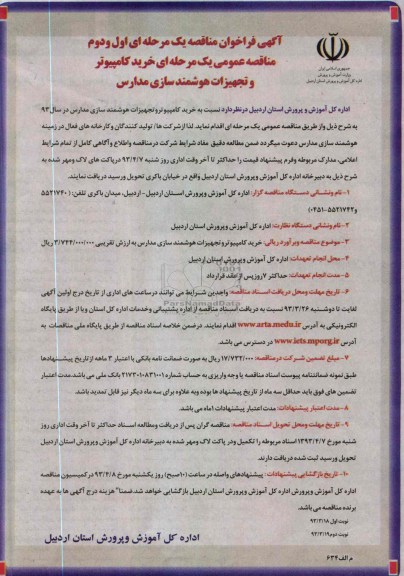 آگهی فراخوان مناقصه یک مرحله ای اول و دوم
مناقصه عمومی یک مرحله ای خرید کامپیوتر
و تجهیزات هوشمند سازی مدارس
جمهوری اسلامی ایران
وزارت آموزش و پرورش
اداره کل آموزش و پرورش استان اردبیل
اداره کل آموزش و پرورش استان اردبیل درنظردارد نسبت به خرید کامپیوتر و تجهیزات هوشمند سازی مدارس در سال ۹۳
به شرح ذیل و از طریق مناقصه عمومی یک مرحله ای اقدام نماید. لذا از شرکت ها/ تولید کنندگان و کارخانه های فعال در زمینه
هوشمند سازی مدارس دعوت میگردد ضمن مطالعه دقیق مفاد شرایط شرکت در مناقصه واطلاع و آگاهی کامل از تمام شرایط
اعلامی، مدارک مربوطه وفرم پیشنهاد قیمت را حداکثر تا آخر وقت اداری روز شنبه ۹۳/۴/۷ در پاکت های لاک ومهر شده به
شرح ذیل به دبیرخانه اداره کل آموزش و پرورش استان اردبیل واقع در خیابان باکری تحویل ورسید دریافت نمایند.
۱- نام ونشانی دستگاه مناقصه گزار: اداره کل آموزش وپرورش استان اردبیل - اردبیل، میدان باکری تلفن: ( ۵۵۲۱۷۴۰
و۵۵۲۱۷۴۲-۰۴۵۱)
۲- نام ونشانی دستگاه نظارت: اداره کل آموزش و پرورش استان اردبیل
۳- موضوع مناقصه وبرآورد ریالی: خرید کامپیوتر و تجهیزات هوشمند سازی مدارس به ارزش تقریبی ۳/۷۴۴/۰۰۰/۰۰۰ ریال
۴- محل انجام تعهدات: اداره کل آموزش وپرورش استان اردبیل
۵- مدت انجام تعهدات: حداکثر ۷ روز پس از عقد قرارداد
۶- تاریخ مهلت ومحل دریافت اسناد مناقصه: واجدین شرایط می توانند در ساعت های اداری از تاریخ درج اولین آگهی
لغایت تا دوشنبه ۹۳/۳/۲۶ نسبت به دریافت اسناد مناقصه از اداره پشتیبانی وخدمات اداره کل استان ویا از طریق پایگاه
الکترونیکی به آدرس www.arta.medu.ir اقدام نمایند. درضمن خلاصه اسناد مناقصه از طریق پایگاه ملی مناقصات به
آدرس www.iets.mporg.ir در دسترس می باشد.
۷- مبلغ تضمین شرکت در مناقصه: ۱۷/۷۳۲/۰۰۰ ریال به صورت ضمانت نامه بانکی با اعتبار ۳ ماهه از تاریخ پیشنهادها
طبق نمونه ضمانتنامه پیوست اسناد مناقصه یا وجه واریزی به حساب شماره ۲۱۷۳۰۱۰۸۳۱۰۰۱ بانک ملی می باشد.مدت اعتبار
تضمین های فوق باید حداقل سه ماه از تاریخ پیشنهاد ها بوده وبه علاوه برای سه ماه دیگر نیز قابل تمدید باشد.
۸- مدت اعتبار پیشنهادات: مدت اعتبار پیشنهادات ۱ماه می باشد.
۹- تاریخ مهلت ومحل تحویل اسناد مناقصه: مناقصه گران پس از دریافت ومطالعه اسناد حداکثر تا آخر وقت اداری روز
شنبه مورخ ۱۳۹۳/۴/۷ اسناد مربوطه را تکمیل ودر پاکت لاک ومهر شده به دبیرخانه اداره کل آموزش وپرورش استان اردبیل
تحویل ورسید ثبت شده دریافت دارند.
۱۰- تاریخ بازگشایی پیشنهادات: پیشنهادهای واصله در ساعت (۱۰صبح) روز یکشنبه مورخ ۹۳/۴/۸ در کمیسیون مناقصه
اداره کل آموزش وپرورش اداره کل آموزش وپرورش استان اردبیل بازگشایی خواهد شد.ضمنا" هزینه درج آگهی ها به عهده
برنده مناقصه می باشد.
نوبت اول ۹۳/۳/۱۸
نوبت دوم ۹۳/۳/۱۹
اداره کل آموزش وپرورش استان اردبیل
م الف ۶۳۴